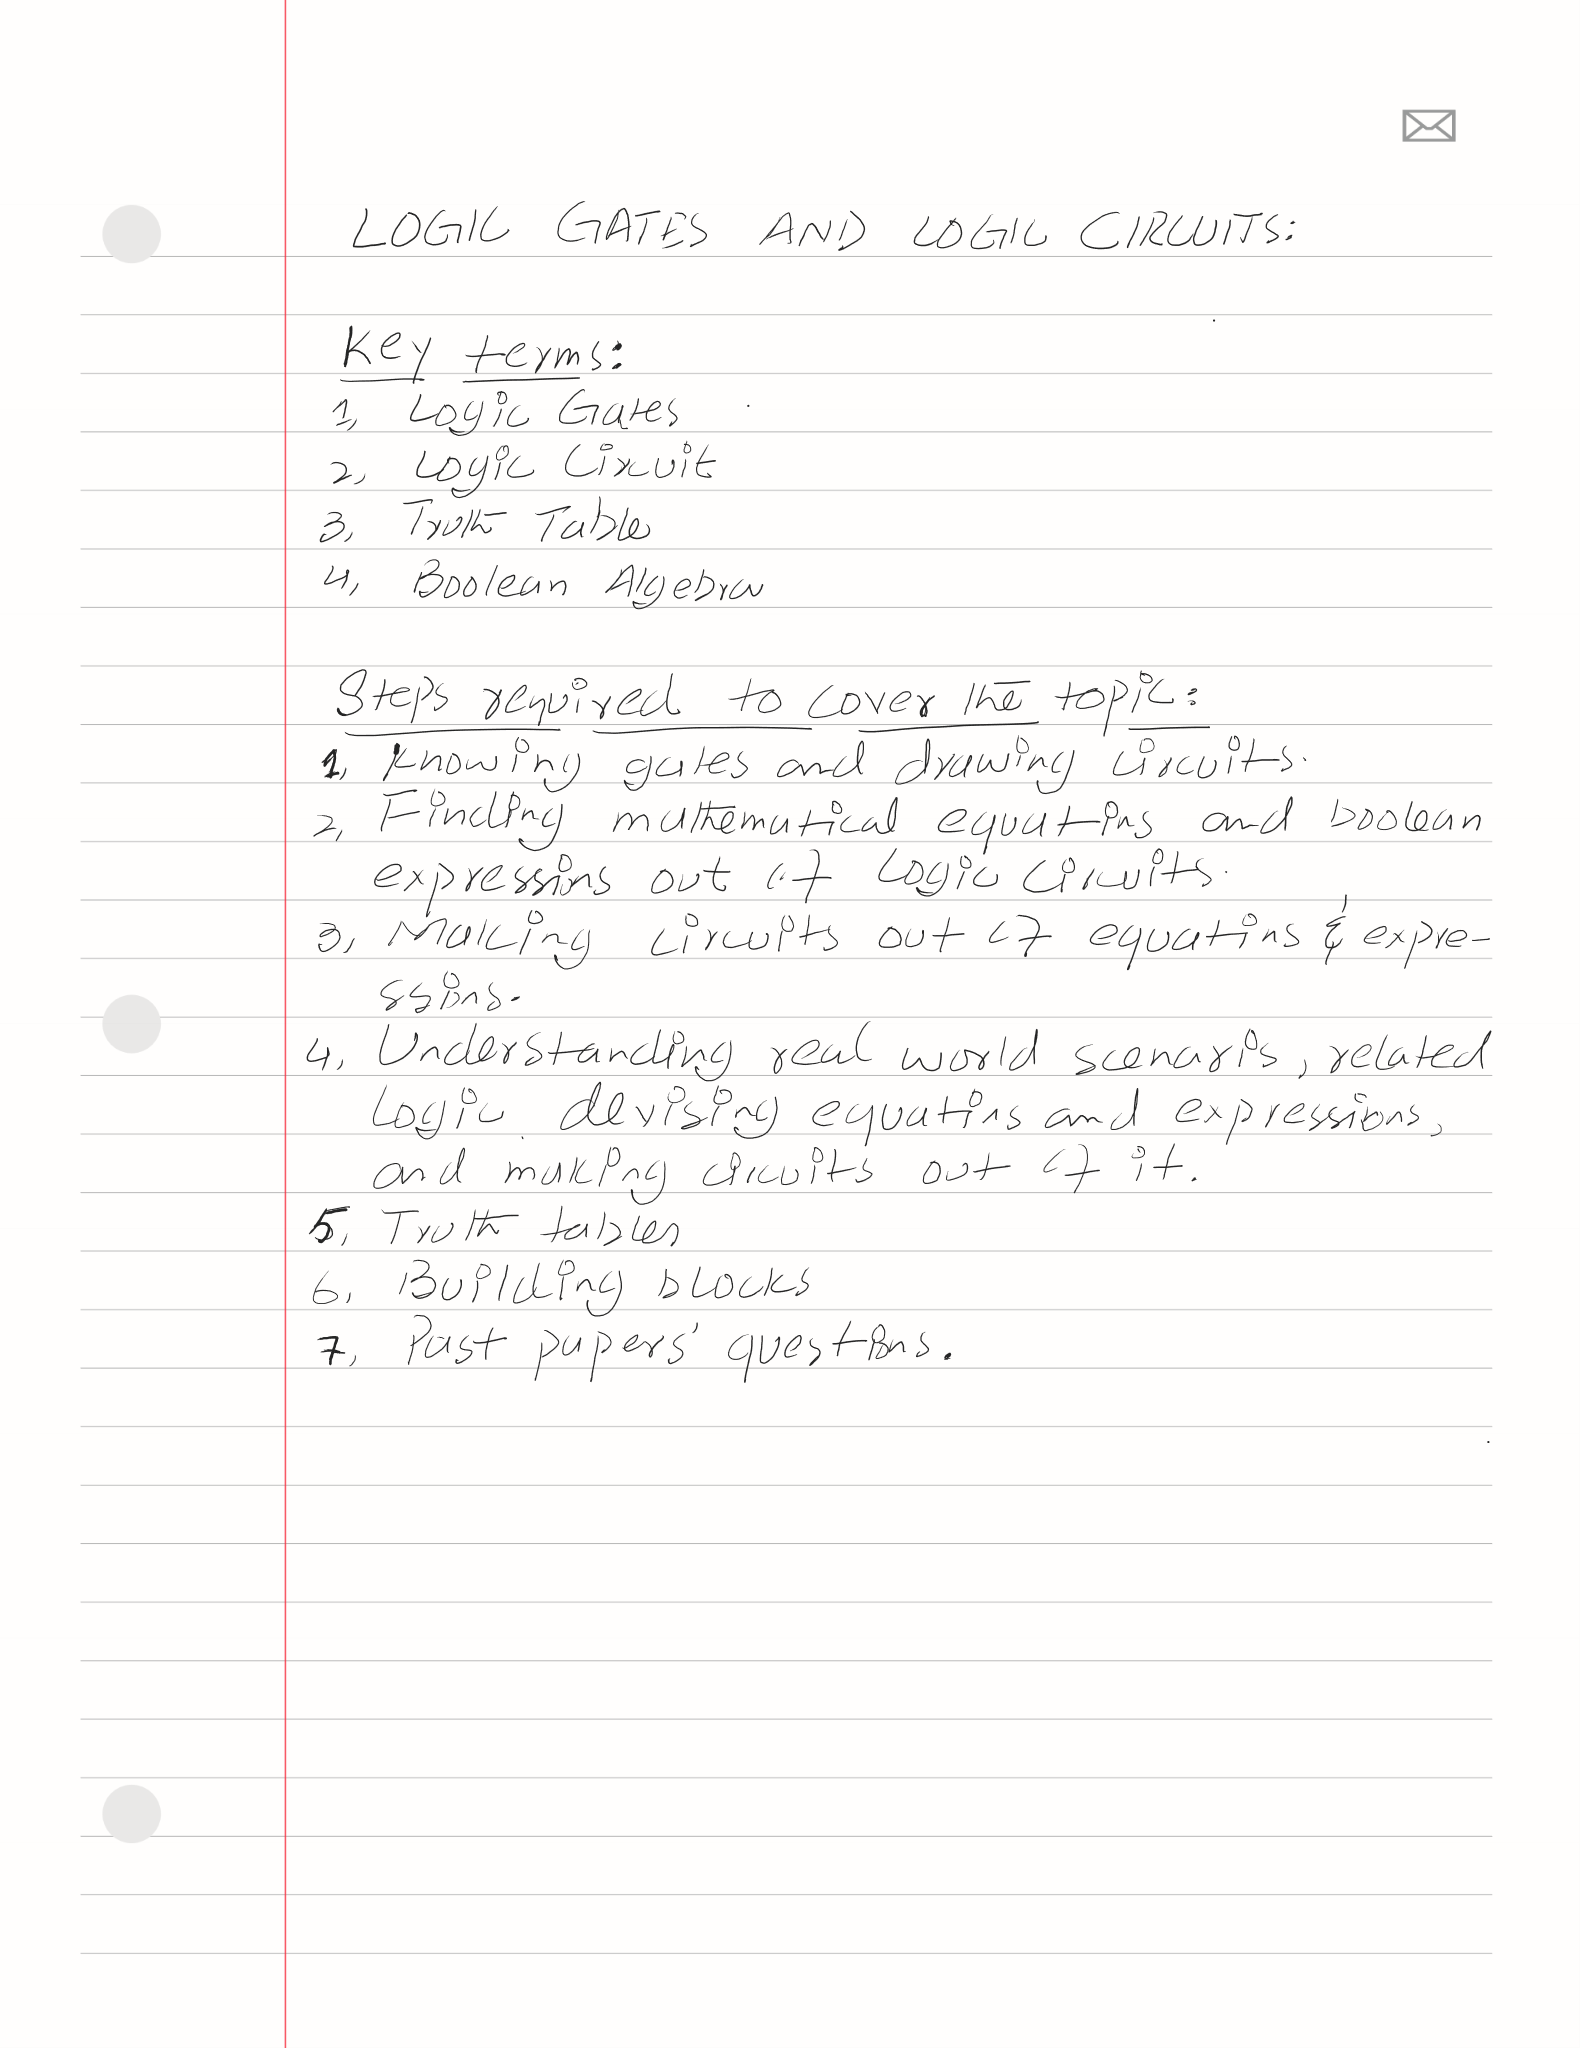 LOGIC GATES AND LOGIC CIRCUITS:
Key terms:
1, Logic Gates
2, Logic Circuit
3, Truth Table
4, Boolean Algebra
Steps required to cover the topic:
1, Knowing gates and drawing circuits.
2, Finding mathematical equations and boolean
expressions out of Logic Circuits.
3, Making circuits out of equations & expre-
ssions.
4, Understanding real world scenarios, related
logic, devising equations and expressions,
and making circuits out of it.
5, Truth tables
6, Building blocks
7, Past papers' questions.